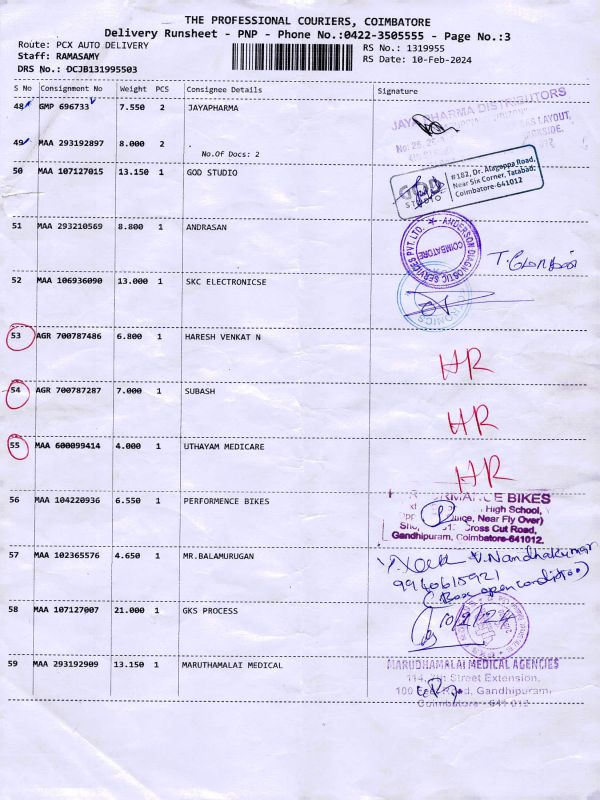 THE PROFESSIONAL COURIERS, COIMBATORE
Delivery Runsheet - PNP - Phone No.:0422-3505555 - Page No.:3
Route: PCX AUTO DELIVERY RS No.: 1319955
Staff: RAMASAMY RS Date: 10-Feb-2024
DRS No.: DCJB131995503
S No Consignment No Weight PCS Consignee Details Signature
48 GMP 696733 7.550 2 JAYAPHARMA
JAYAPHARMA DISTRIBUTORS
LAYOUT,
49 MAA 293192897 8.000 2 .
No.Of Docs: 2
50 MAA 107127015 13.150 1 GOD STUDIO
GOD STUDIO
#182, Dr. Alagappa Road,
Near Six Corner, Tatabad,
Coimbatore-641012
51 MAA 293210569 8.800 1 ANDRASAN
ANDERSON DIAGNOSTIC SERVICES PVT. LTD.
COIMBATORE
52 MAA 106936090 13.000 1 SKC ELECTRONICSE
53 AGR 700787486 6.800 1 HARESH VENKAT N HR
54 AGR 700787287 7.000 1 SUBASH HR
55 MAA 600099414 4.000 1 UTHAYAM MEDICARE HR
56 MAA 104220936 6.550 1 PERFORMENCE BIKES
BIKES
High School,
Near Fly Over)
Cross Cut Road,
Gandhipuram, Coimbatore-641012.
57 MAA 102365576 4.650 1 MR.BALAMURUGAN
V.Nandhakumar
9940615921
(Box open condition)
58 MAA 107127007 21.000 1 GKS PROCESS
10/2/24
59 MAA 293192909 13.150 1 MARUTHAMALAI MEDICAL
MARUDHAMALAI MEDICAL AGENCIES
114, 7th Street Extension,
100 Feet Road, Gandhipuram,
Coimbatore - 641 012